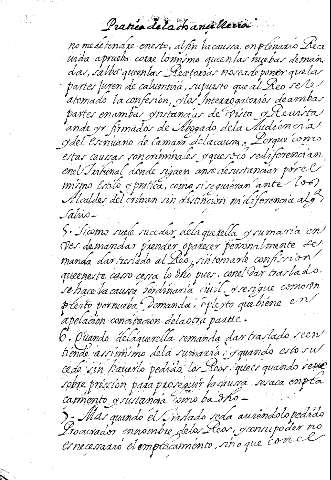 Pratica de la chancilleria
no me detendre en esto, al fin la caussa en plenario Rece
vida a prueba corre lo mismo que en las nuebas deman
das, salbo que en las Retorias no se ade poner que las
partes juren de calumnia, supuesto que al Reo se le a
tomado la confesion, y los Interrogatorios de ambas
partes en ambas ynstancias de vista y Revista
an de yr firmados de Abogado de la Audiencia
y del Escrivano de camara de la caussa. Porque como
estas caussas son criminales, y que solo se diferencian
en el tribunal donde siguen an de sustanciar por el
mismo estilo y pratica, como si siguieran ante los
Alcaldes del crimen sin distincion ni diferencia al
5. Si como suele suceder, de la querella y sumaria en
ves de mandar prender, o parecer personalmente se
manda dar traslado al Reo, sin tomarle confision
que en este caso cesa lo dho pues con el dar traslado
se hace la caussa hordinaria civil, y se sigue como un
pleyto por nueba demanda, o pleyto que biene en
apelacion con peticion de la otra parte.
6. Quando de la querella se manda dar traslado se en
tiende assimismo de la sumaria, y quando esto su
cede sin haverlo pedido los Reos, que es quando se ve
sobre prision para proseguir la caussa se saca empla
camiento, y sustancia como ba dho
7. Mas quando el traslado se da aviendolo pedido
Procurador en nombre de los Reos, y con su poder no
es necessario el emplaçamiento, sino que con el